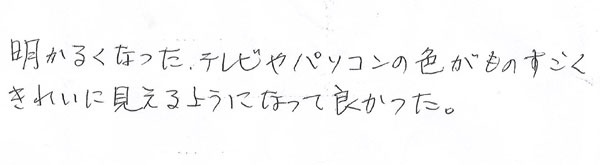 明かるくなった、テレビやパソコンの色がものすごく
きれいに見えるようになって良かった。